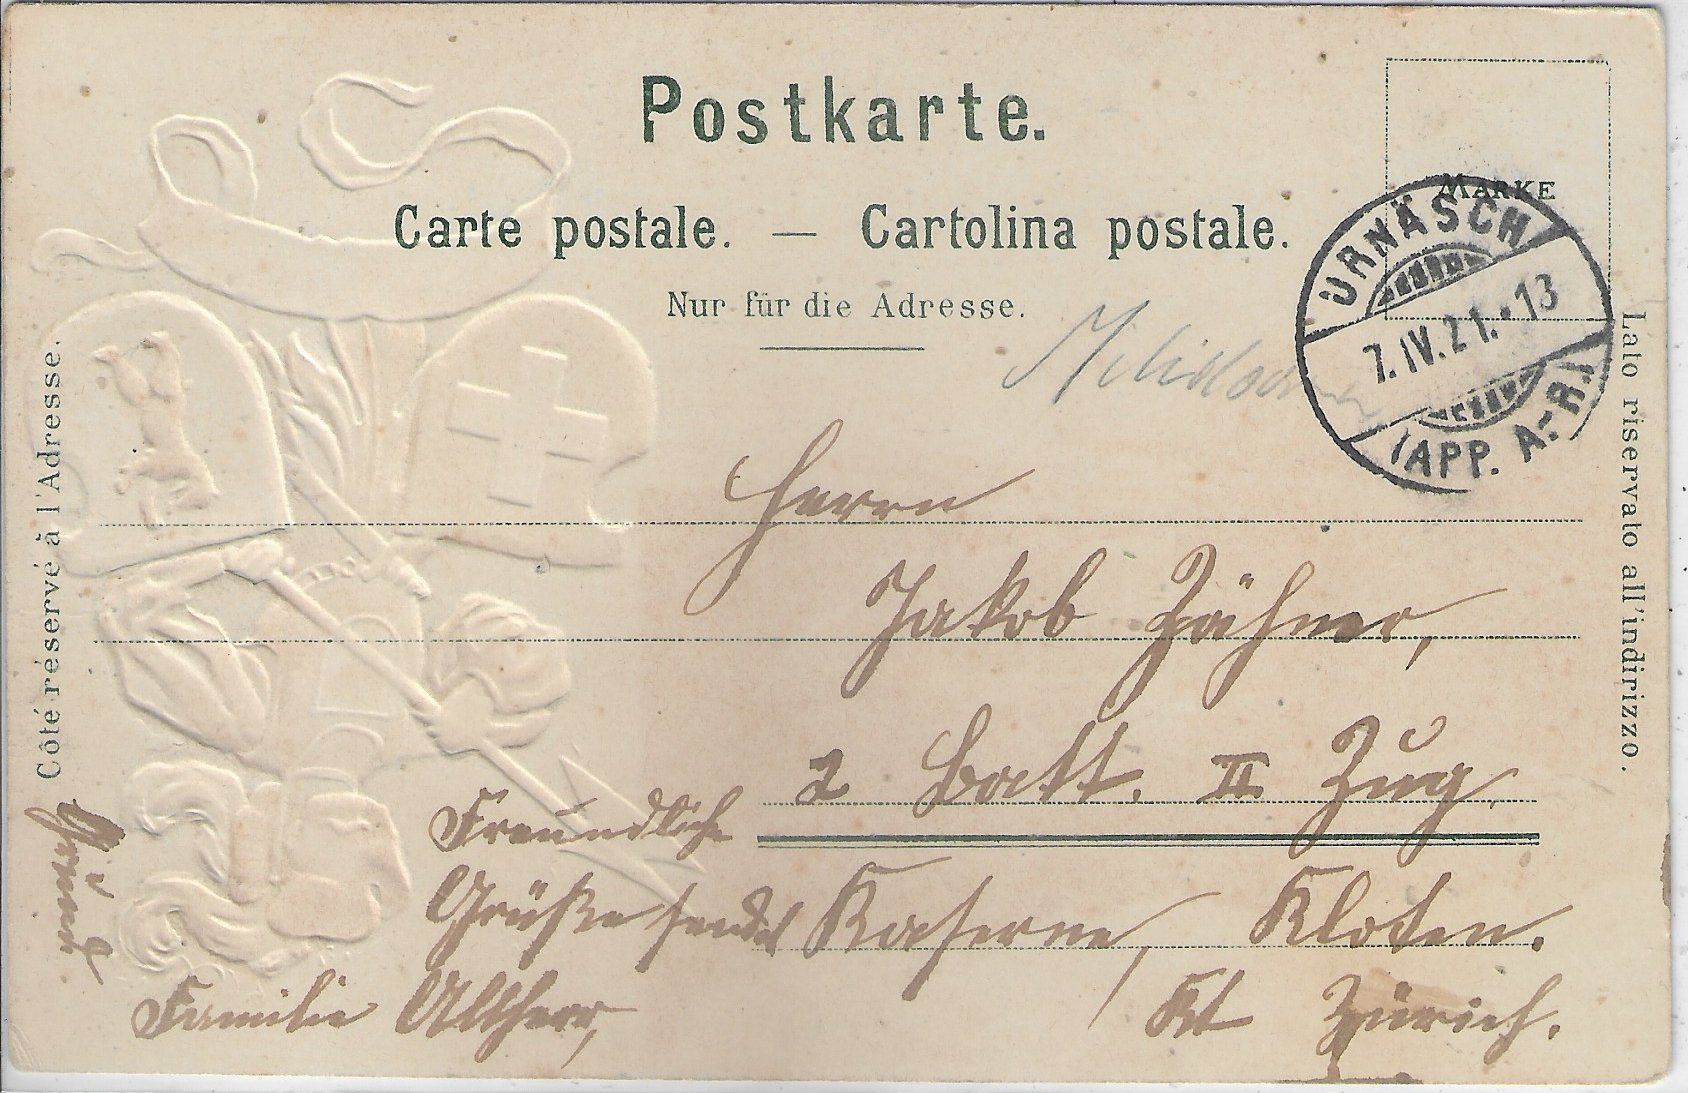 Postkarte.
Carte postale. — Cartolina postale.
Nur für die Adresse.
MARKE
URNÄSCH
7. IV. 21. - 13
(APP. A.-R.)
Côté réservé à l'Adresse.
Lato riservato all'indirizzo.
Herrn
Jakob Zähner,
2 Batt. II. Zug.
Kaserne, Kloten.
Kt Zürich.
Freundliche
Grüße sendet
Familie Altherr,